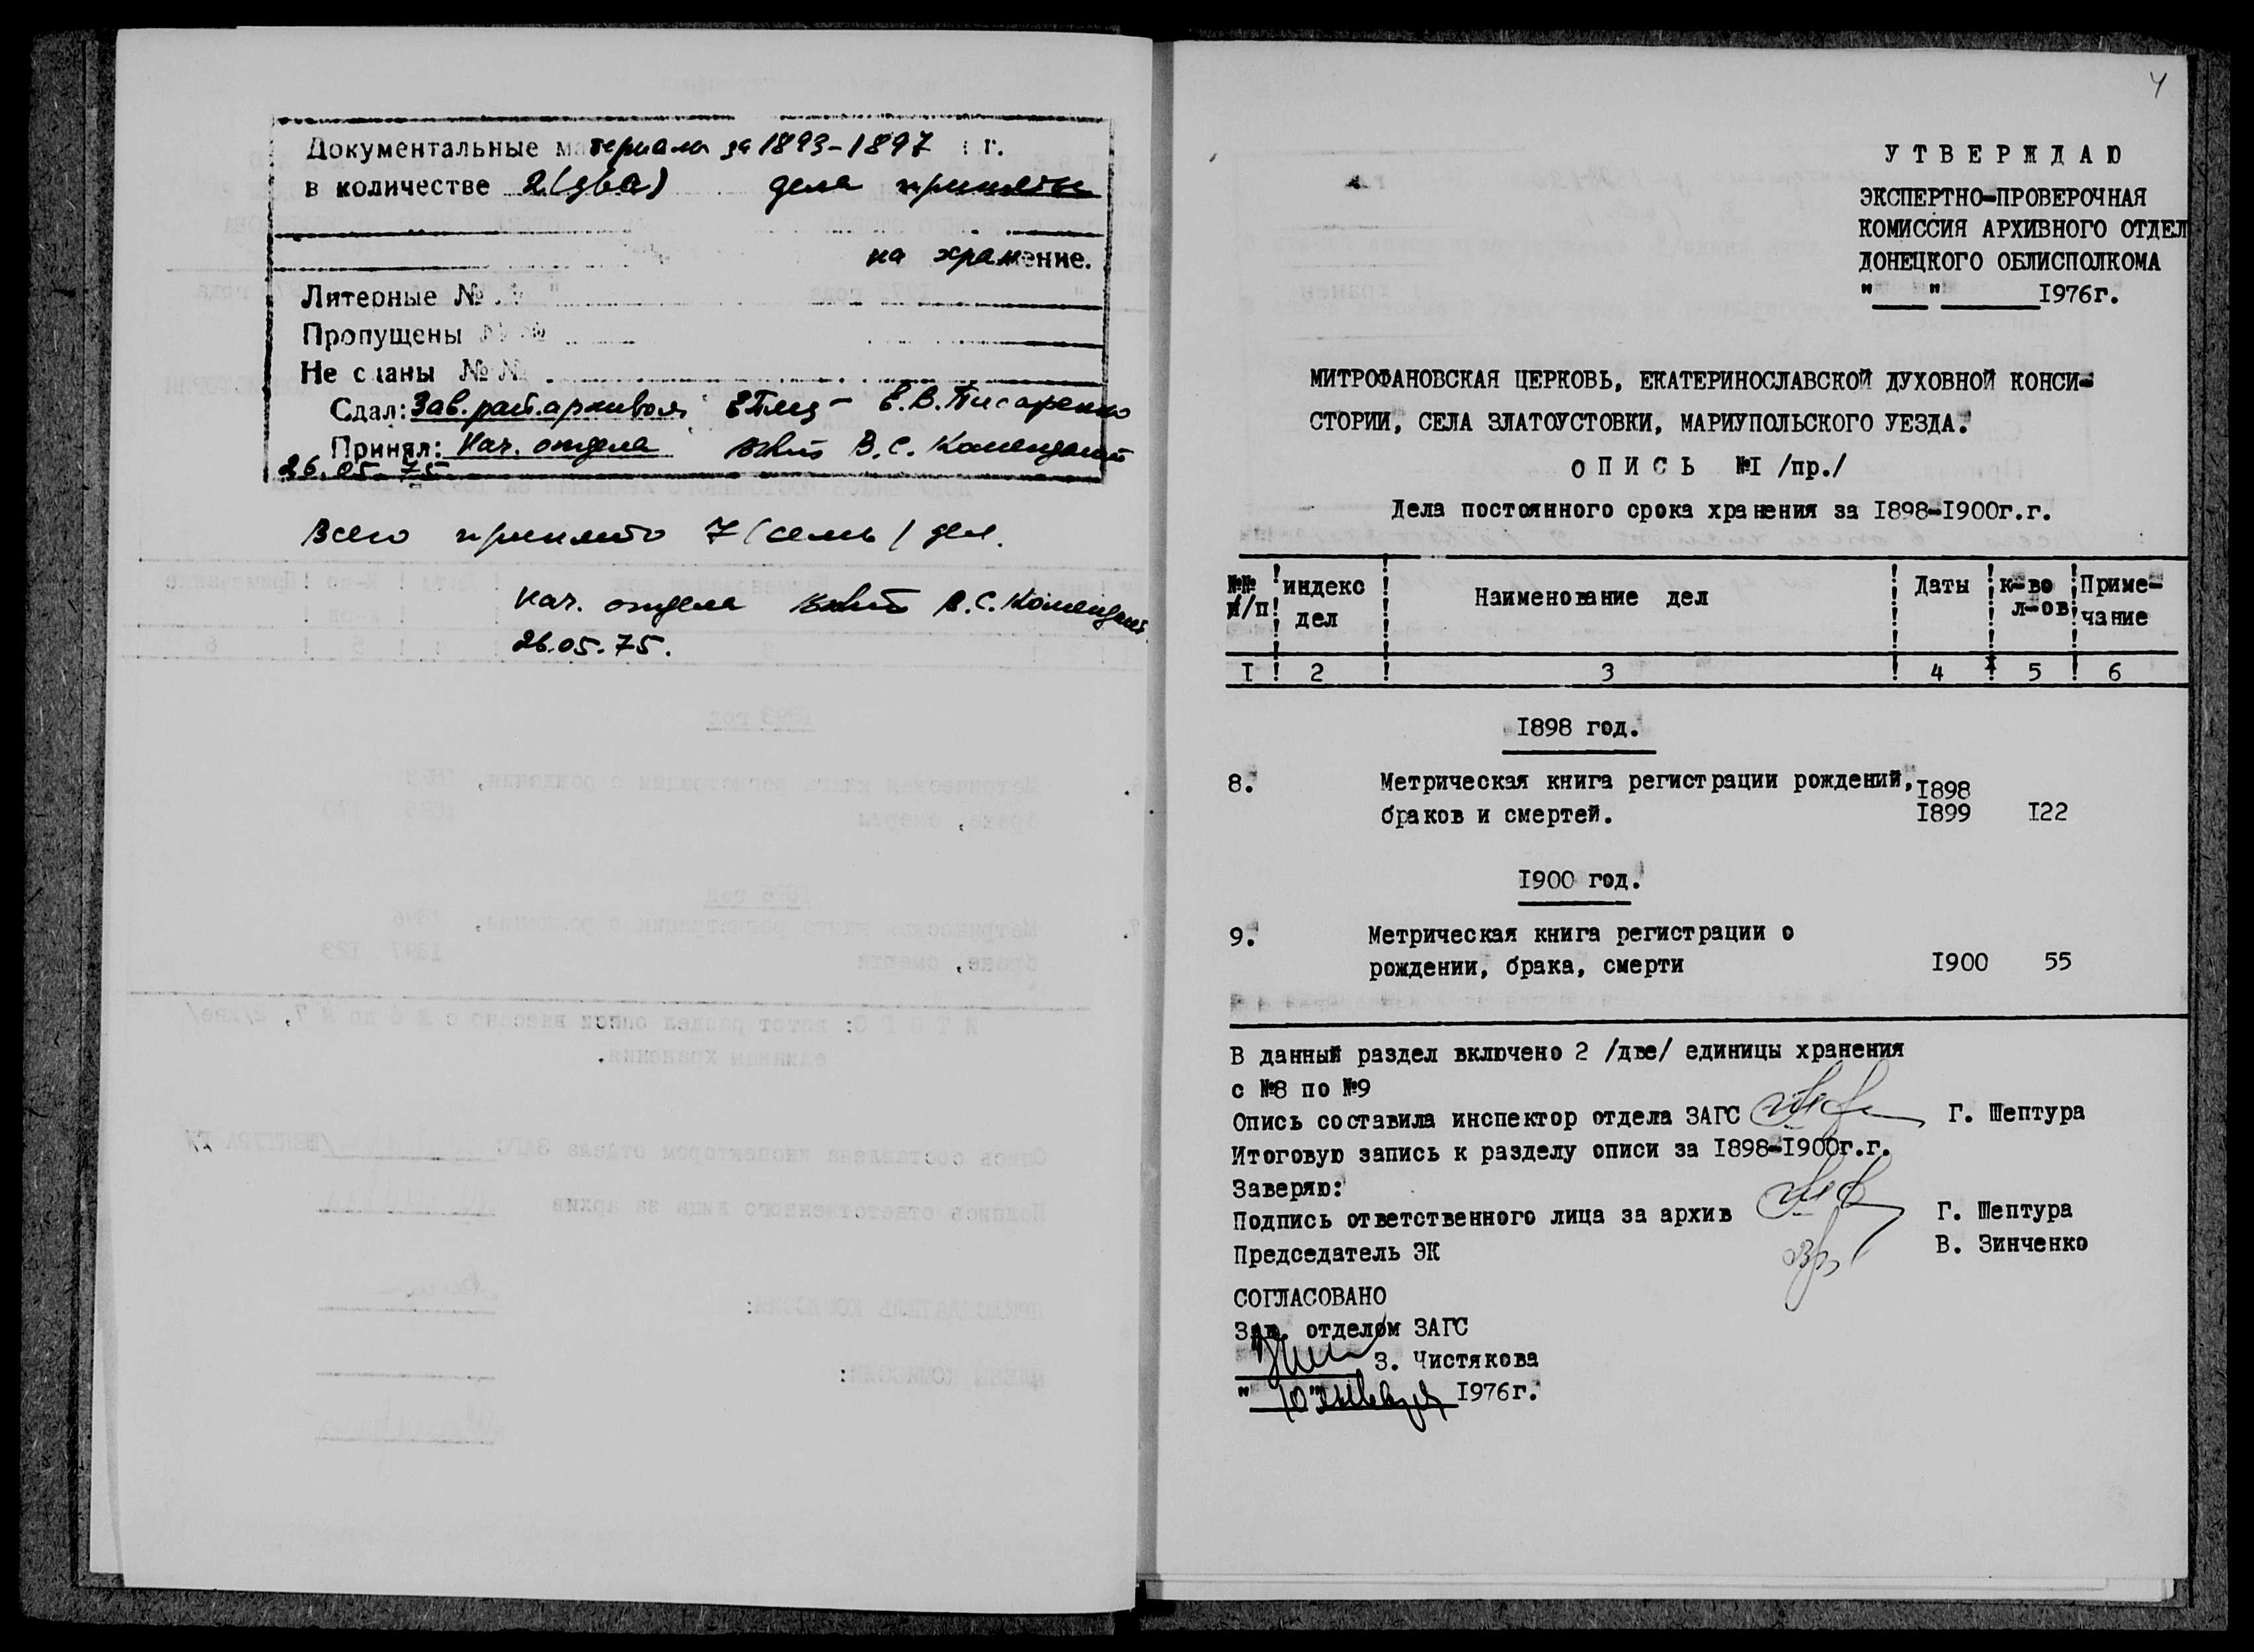 Документальные материалы за 1893-1897 г.
в количестве 2 (два) дела приняты
на хранение.
Литерные №
Пропущены №№
Не сданы №№
Сдал: Зав. рай. архивом Е.В. Писаренко
Принял: Нач. отдела В.С. Комендант
26.05.75
Всего принято 7 (семь) дел.
Нач. отдела В.С. Комендант
26.05.75.
4
УТВЕРЖДАЮ
ЭКСПЕРТНО-ПРОВЕРОЧНАЯ
КОМИССИЯ АРХИВНОГО ОТДЕЛ
ДОНЕЦКОГО ОБЛИСПОЛКОМА
"___"______1976г.
МИТРОФАНОВСКАЯ ЦЕРКОВЬ, ЕКАТЕРИНОСЛАВСКОЙ ДУХОВНОЙ КОНСИ-
СТОРИИ, СЕЛА ЗЛАТОУСТОВКИ, МАРИУПОЛЬСКОГО УЕЗДА.
ОПИСЬ №I /пр./
Дела постоянного срока хранения за 1898-1900г.г.
№№ п/п ! индекс дел ! Наименование дел ! Даты ! к-во л-ов ! Приме- чание
I ! 2 ! 3 ! 4 ! 5 ! 6
1898 год.
8. Метрическая книга регистрации рождений, 1898
браков и смертей. 1899 122
1900 год.
9. Метрическая книга регистрации о
рождении, брака, смерти 1900 55
В данный раздел включено 2 /две/ единицы хранения
с №8 по №9
Опись составила инспектор отдела ЗАГС Г. Шептура
Итоговую запись к разделу описи за 1898-1900г.г.
Заверяю:
Подпись ответственного лица за архив Г. Шептура
Председатель ЭК В. Зинченко
СОГЛАСОВАНО
Зав. отделом ЗАГС
З. Чистякова
"10" января 1976г.